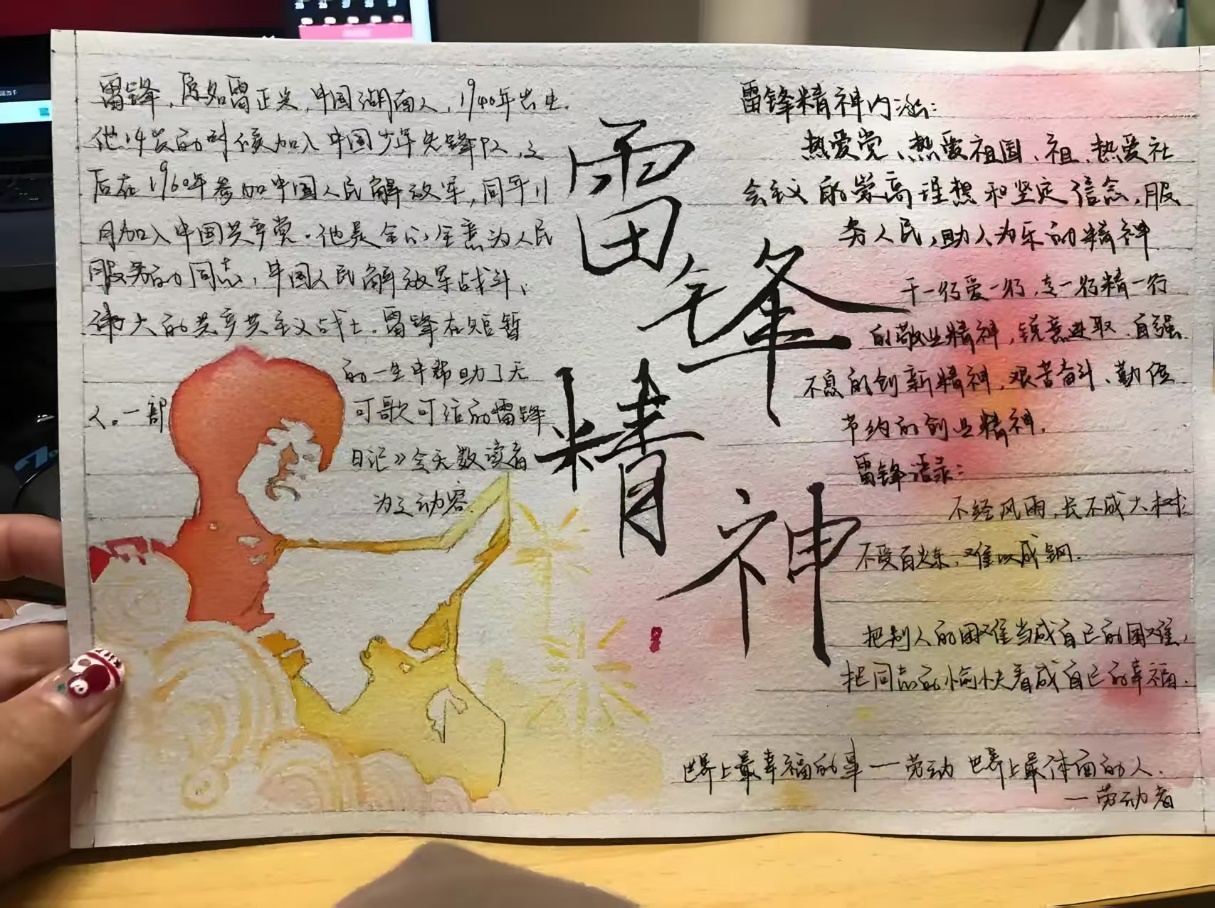 雷锋，原名雷正兴，中国湖南人，1940年出生.
他14岁的时候加入中国少年先锋队，之
后在1960年参加中国人民解放军，同年11
月加入中国共产党。他是全心全意为人民
服务的同志，中国人民解放军战斗、
伟大的共产共主义战士.雷锋在短暂
的一生中帮助了无
人。一部 可歌可泣的雷锋
日记》令天数读者
为之动容.
雷锋精神
雷锋精神内涵：
热爱党、热爱祖国、祖、热爱社
会主义的崇高理想和坚定信念，服
务人民，助人为乐的精神
干一行爱一行，专一行精一行
的敬业精神，锐意进取、自强
不息的创新精神，艰苦奋斗、勤俭
节约的创业精神.
雷锋语录：
不经风雨，长不成大树；
不受百炼，难以成钢.
把别人的困难当成自己的困难，
把同志的愉快看成自己的幸福.
世界上最幸福的事一劳动 世界上最体面的人.
一劳动者